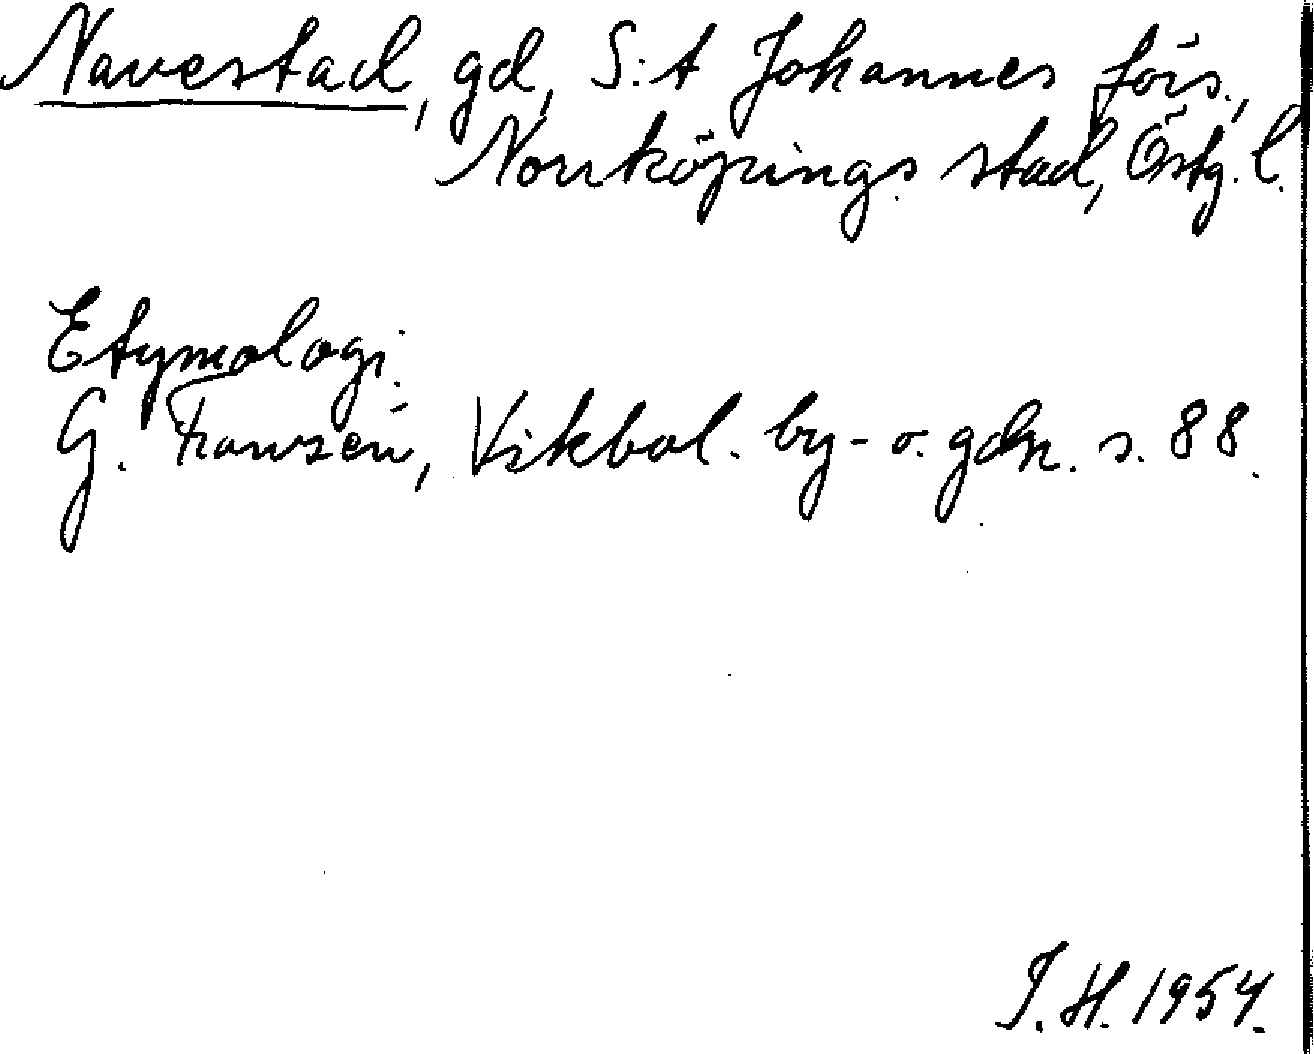 Navestad, gd, S:t Johannes förs.,
Norrköpings stad, Östg. l.
Etymologi:
G. Franzén, Vikbol. by- o. gdn. s. 88.
I. H. 1954.